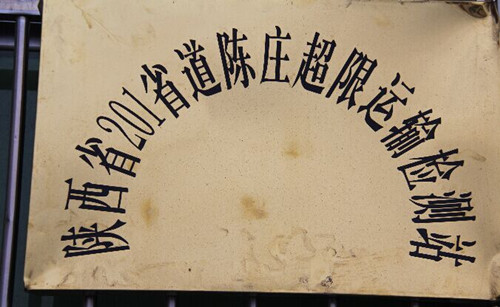 陕西省201省道陈庄超限运输检测站